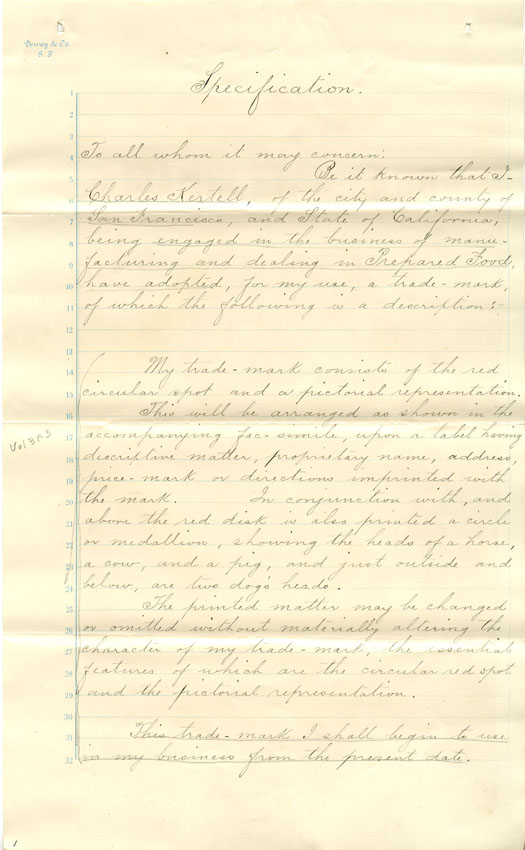 Dewey & Co.
S. F.
Specification.
1
2
3
4
5
6
7
8
9
10
11
12
13
14
15
16
17
18
19
20
21
22
23
24
25
26
27
28
29
30
31
32
To all whom it may concern:
Be it known that I-
Charles Kertell, of the city and county of
San Francisco, and State of California,
being engaged in the business of manu-
facturing and dealing in Prepared Food,
have adopted, for my use, a trade-mark,
of which the following is a description:-
My trade-mark consists of the red
circular spot and a pictorial representation.
This will be arranged as shown in the
accompanying fac-simile, upon a label having
descriptive matter, proprietary name, address,
price-mark or directions imprinted with
the mark. In conjunction with, and
above the red disk is also printed a circle
or medallion, showing the heads of a horse,
a cow, and a pig, and just outside and
below, are two dog's heads.
The printed matter may be changed
or omitted without materially altering the
character of my trade-mark, the essential
features of which are the circular red spot
and the pictorial representation.
This trade-mark I shall begin to use
in my business from the present date.
1